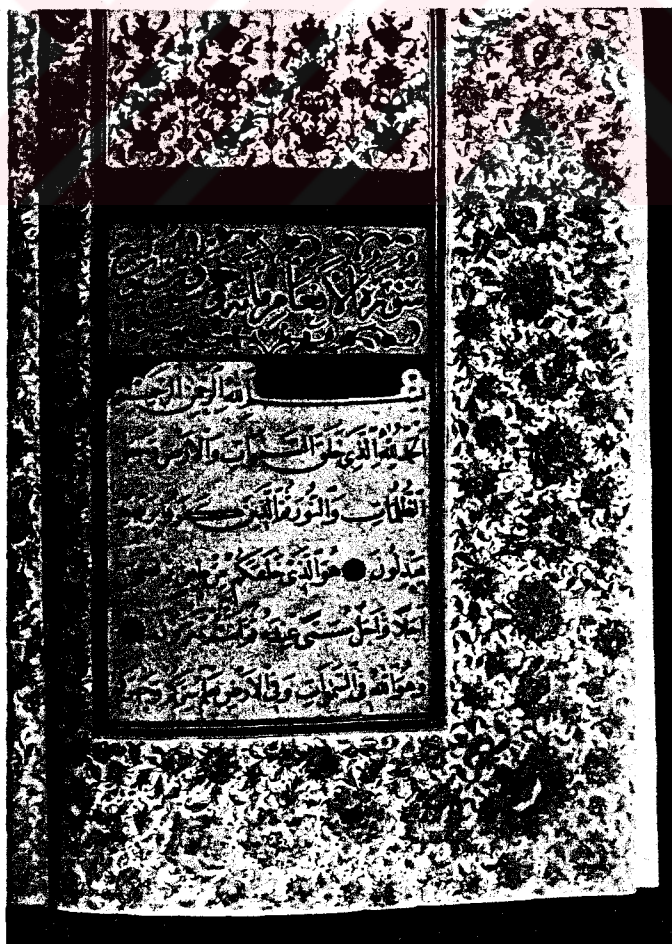 سورة الانعام مائة و
بسم الله الرحمن الرحيم
الحمد لله الذي خلق السموات والارض وجعل
الظلمات والنور ثم الذين كفروا بربهم
يعدلون هو الذي خلقكم من طين ثم قضى
اجلا واجل مسمى عنده ثم انتم تمترون
وهو الله في السموات وفي الارض يعلم سركم وجهركم